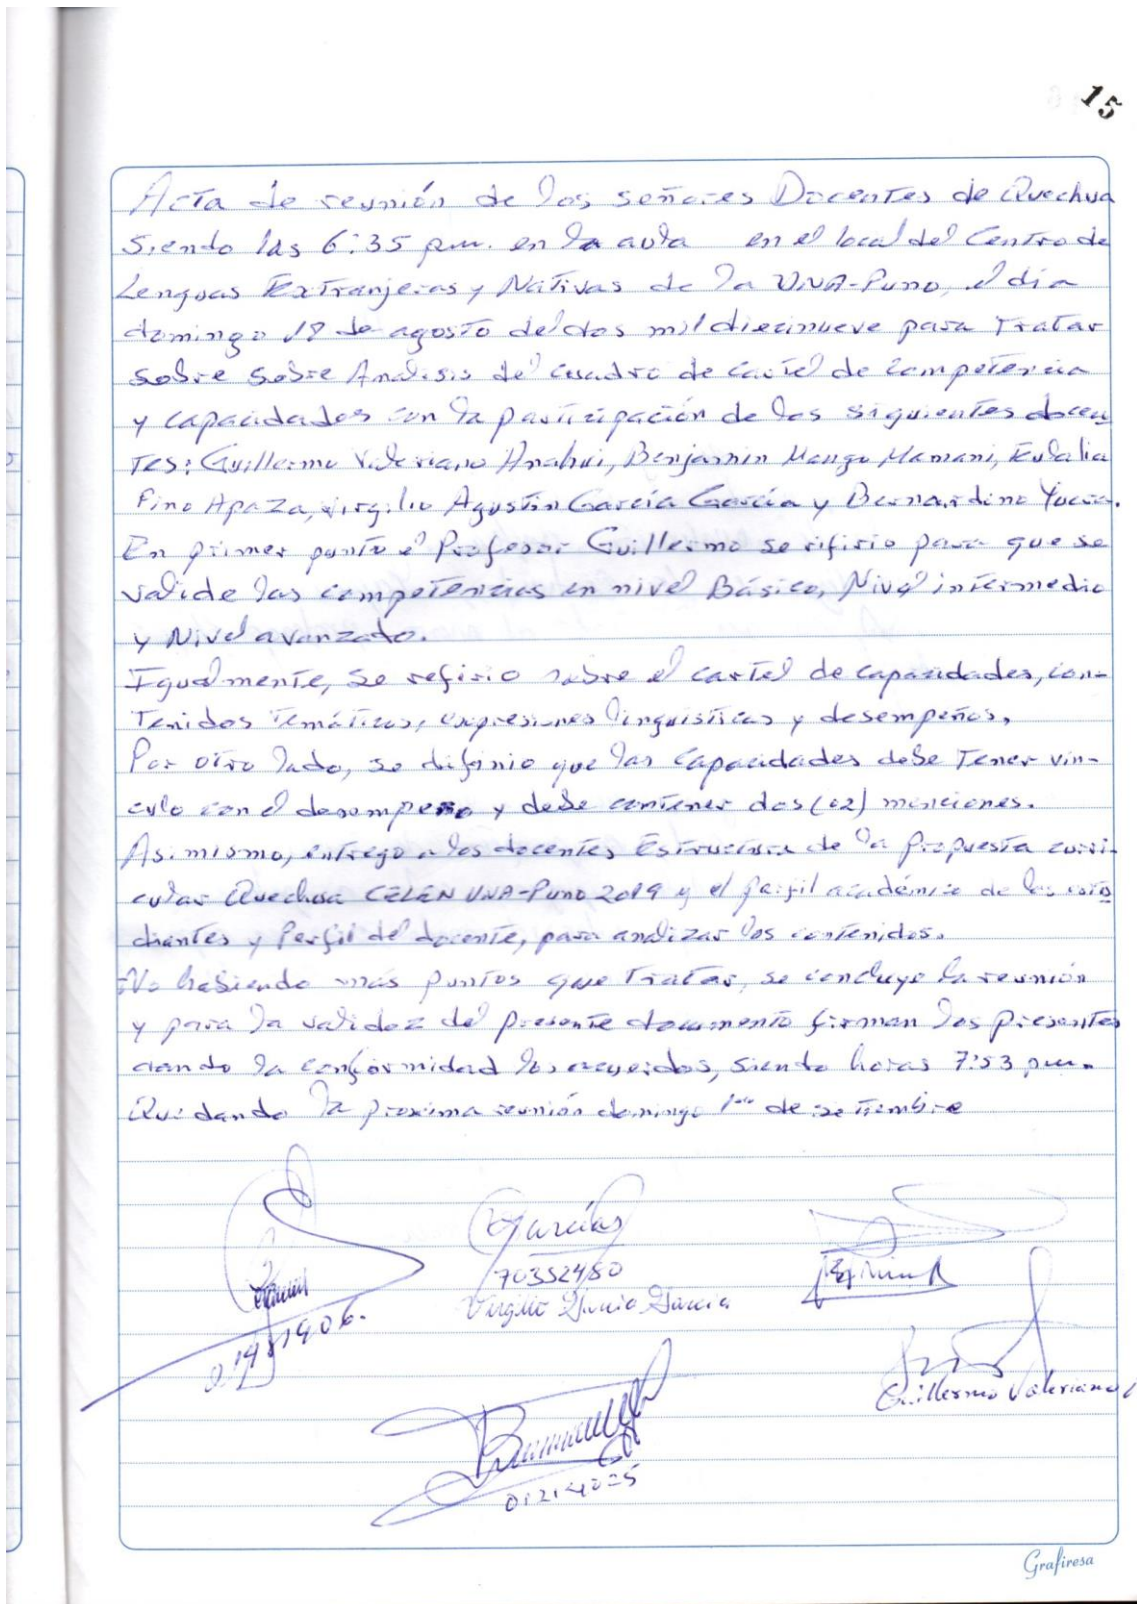 15
Acta de reunión de los señores Docentes de Quechua
Siendo las 6:35 p.m. en la aula en el local del Centro de
Lenguas Extranjeras y Nativas de la UNA-Puno, el día
domingo 18 de agosto del dos mil diecinueve para Tratar
sobre sobre Analisis del cuadro de cartel de competencia
y capacidades con la participación de los siguientes docen
Tes: Guillermo Valeriano Anahui, Benjamin Mango Mamani, Eulalia
Pino Apaza, Virgilio Agustín García García y Bernardino Yucra.
En primer punto el Profesor Guillermo se rifirio para que se
valide las competencias en nivel Básico, Nivel intermedio
y Nivel avanzado.
Igualmente, se refirio sobre el cartel de capacidades, con-
Tenidos Temáticos, expresiones linguisticas y desempeños,
Por otro lado, se difinio que las capacidades debe Tener vin-
culo con el desempeño y debe contener dos (02) menciones.
Asimismo, entrego a los docentes Estructura de la Propuesta curri-
cular Quechua CELEN UNA-Puno 2019 y el perfil académico de los estu
diantes y Perfil del docente, para analizar los contenidos.
No habiendo más puntos que Tratar, se concluyo la reunión
y para la validez del presente documento firman los presentes
dando la conformidad los acuerdos, siendo horas 7:53 p.m.
Quedando la proxima reunión domingo 1ro de setiembre
Garcías
70352450
Virgilio Garcia Garcia
Guillermo Valeriano
Grafiresa